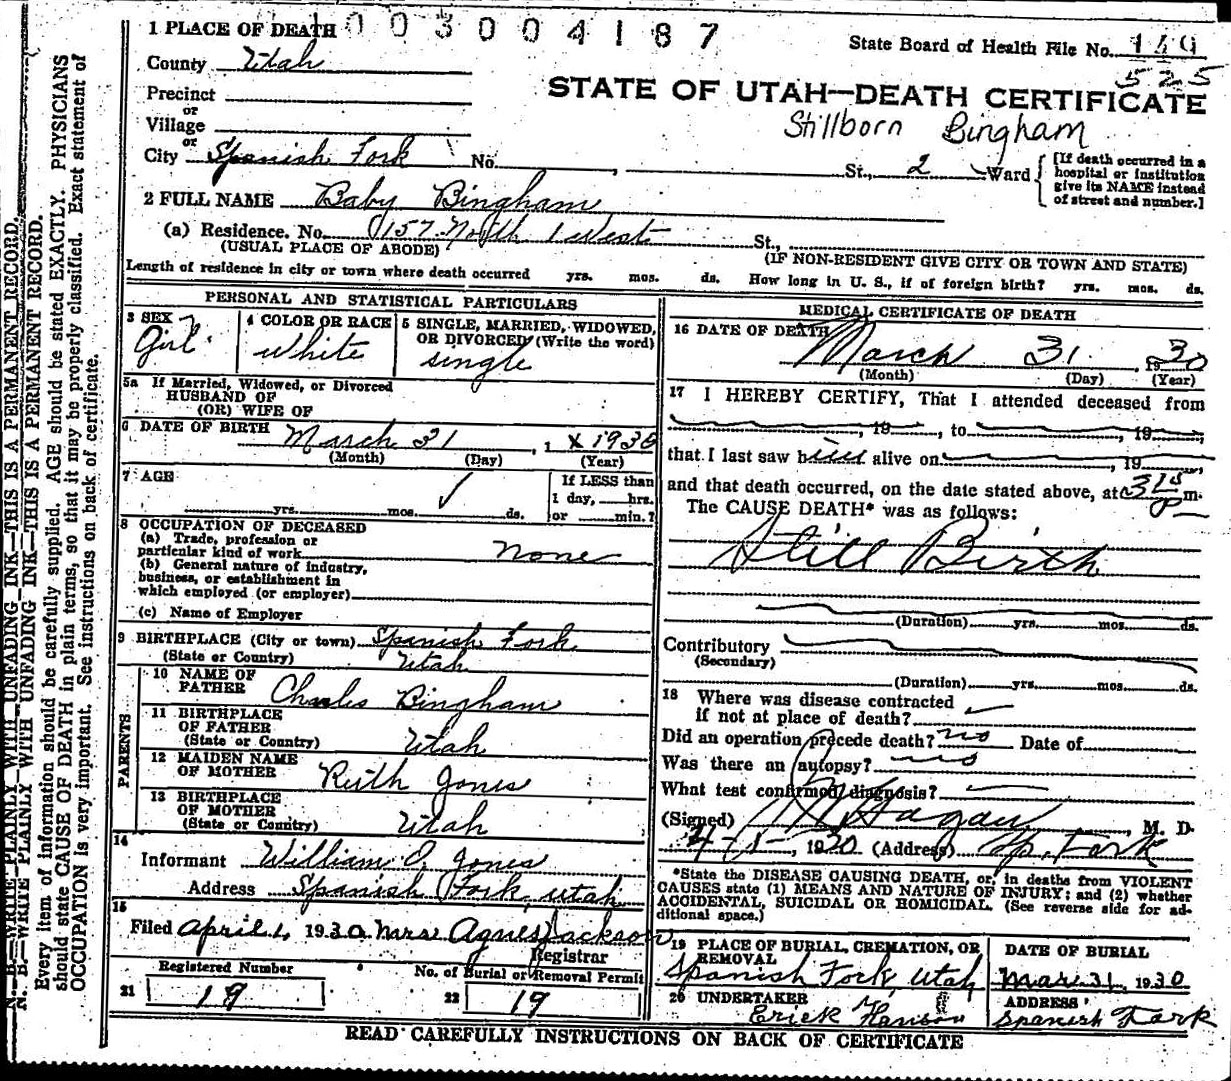 1 PLACE OF DEATH 1003004187
State Board of Health File No. 149
525
County Utah
STATE OF UTAH—DEATH CERTIFICATE
Stillborn Bingham
Precinct
or
Village
or
City Spanish Fork No. , St., 2 Ward
[If death occurred in a
hospital or institution
give its NAME instead
of street and number.]
2 FULL NAME Baby Bingham
(a) Residence. No. 157 North 1 West St.,
(USUAL PLACE OF ABODE) (IF NON-RESIDENT GIVE CITY OR TOWN AND STATE)
Length of residence in city or town where death occurred yrs. mos. ds. How long in U. S., if of foreign birth? yrs. mos. ds.
PERSONAL AND STATISTICAL PARTICULARS
3 SEX
Girl
4 COLOR OR RACE
White
5 SINGLE, MARRIED, WIDOWED,
OR DIVORCED (Write the word)
single
5a If Married, Widowed, or Divorced
HUSBAND OF
(OR) WIFE OF
6 DATE OF BIRTH March 31, 1 x 1930
(Month) (Day) (Year)
7 AGE
yrs. mos. ds.
If LESS than
1 day, hrs.
or min.?
8 OCCUPATION OF DECEASED
(a) Trade, profession or
particular kind of work none
(b) General nature of industry,
business, or establishment in
which employed (or employer)
(c) Name of Employer
9 BIRTHPLACE (City or town) Spanish Fork
(State or Country) Utah
PARENTS
10 NAME OF
FATHER Charles Bingham
11 BIRTHPLACE
OF FATHER
(State or Country) Utah
12 MAIDEN NAME
OF MOTHER Ruth Jones
13 BIRTHPLACE
OF MOTHER
(State or Country) Utah
14
Informant William O. Jones
Address Spanish Fork, Utah
15
Filed April 1, 1930 Mrs. Agnes Jackson
Registrar
Registered Number
21 19
No. of Burial or Removal Permit
22 19
MEDICAL CERTIFICATE OF DEATH
16 DATE OF DEATH
March 31, 1930
(Month) (Day) (Year)
17 I HEREBY CERTIFY, That I attended deceased from
, 19 , to , 19 ,
that I last saw h alive on , 19 ,
and that death occurred, on the date stated above, at 315 P m.
The CAUSE DEATH* was as follows:
Still Birth
(Duration) yrs. mos. ds.
Contributory
(Secondary)
(Duration) yrs. mos. ds.
18 Where was disease contracted
if not at place of death?
Did an operation precede death? no Date of
Was there an autopsy? no
What test confirmed diagnosis?
(Signed) Hagan, M. D.
4-1-, 1930 (Address) Sp. Fork
*State the DISEASE CAUSING DEATH, or, in deaths from VIOLENT
CAUSES state (1) MEANS AND NATURE OF INJURY; and (2) whether
ACCIDENTAL, SUICIDAL OR HOMICIDAL. (See reverse side for ad-
ditional space.)
19 PLACE OF BURIAL, CREMATION, OR
REMOVAL
Spanish Fork, Utah
DATE OF BURIAL
Mar 31, 1930
20 UNDERTAKER
Erick Hanson
ADDRESS
Spanish Fork
READ CAREFULLY INSTRUCTIONS ON BACK OF CERTIFICATE
N. B.—WRITE PLAINLY WITH UNFADING INK—THIS IS A PERMANENT RECORD.
N. B.—WRITE PLAINLY WITH UNFADING INK—THIS IS A PERMANENT RECORD.
Every item of information should be carefully supplied. AGE should be stated EXACTLY. PHYSICIANS
should state CAUSE OF DEATH in plain terms, so that it may be properly classified. Exact statement of
OCCUPATION is very important. See instructions on back of certificate.